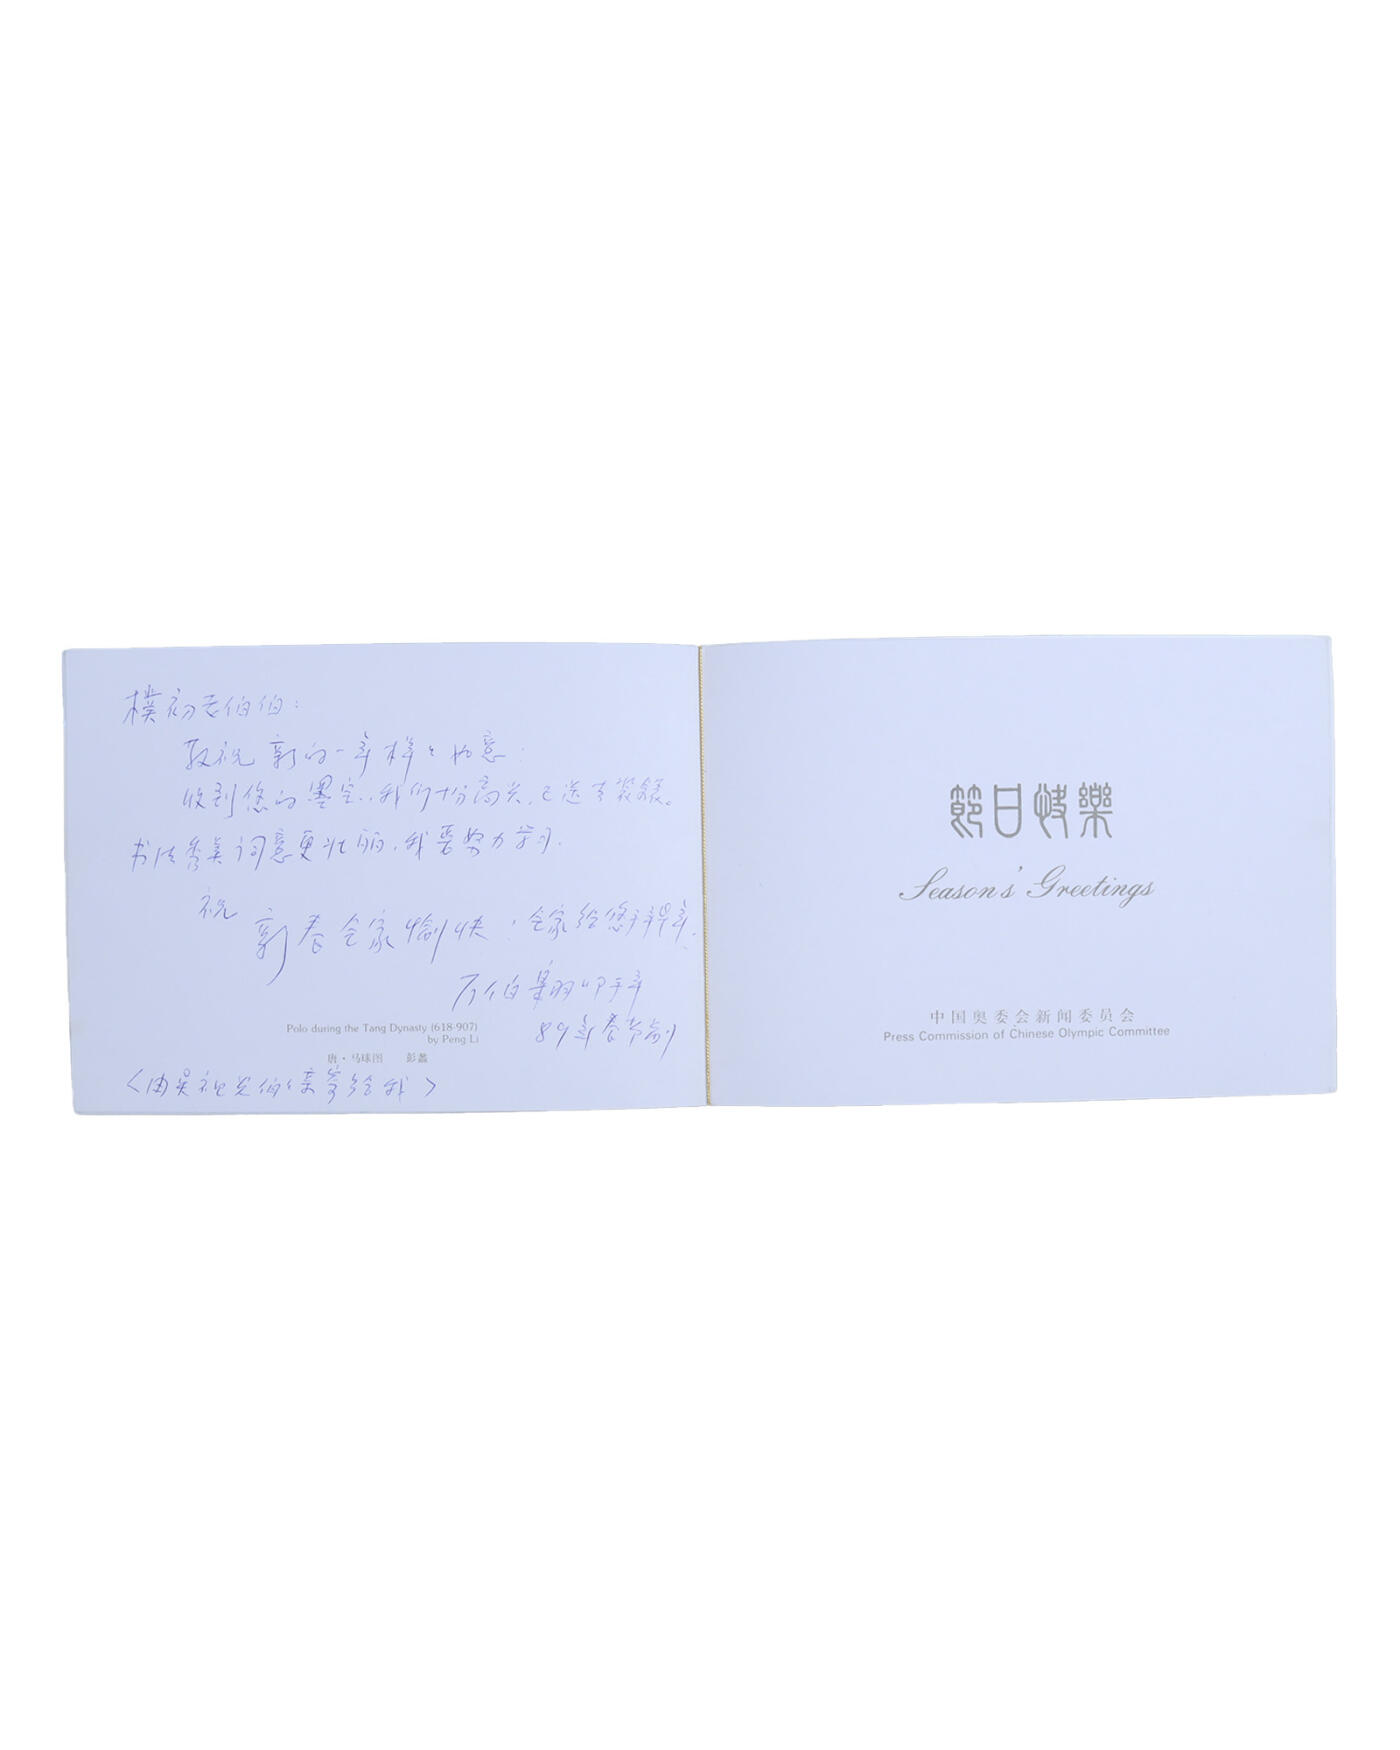 樸初老伯伯：
敬祝新的一年样々如意！
收到您的墨宝，我们十分高兴，已送去装裱。
书法秀美词意更壮丽，我要努力学习。
祝
新春全家愉快！全家给您拜早年！
89年春节前
Polo during the Tang Dynasty (618-907)
by Peng Li
唐·马球图 彭蠡
节日快樂
Season's Greetings
中国奥委会新闻委员会
Press Commission of Chinese Olympic Committee